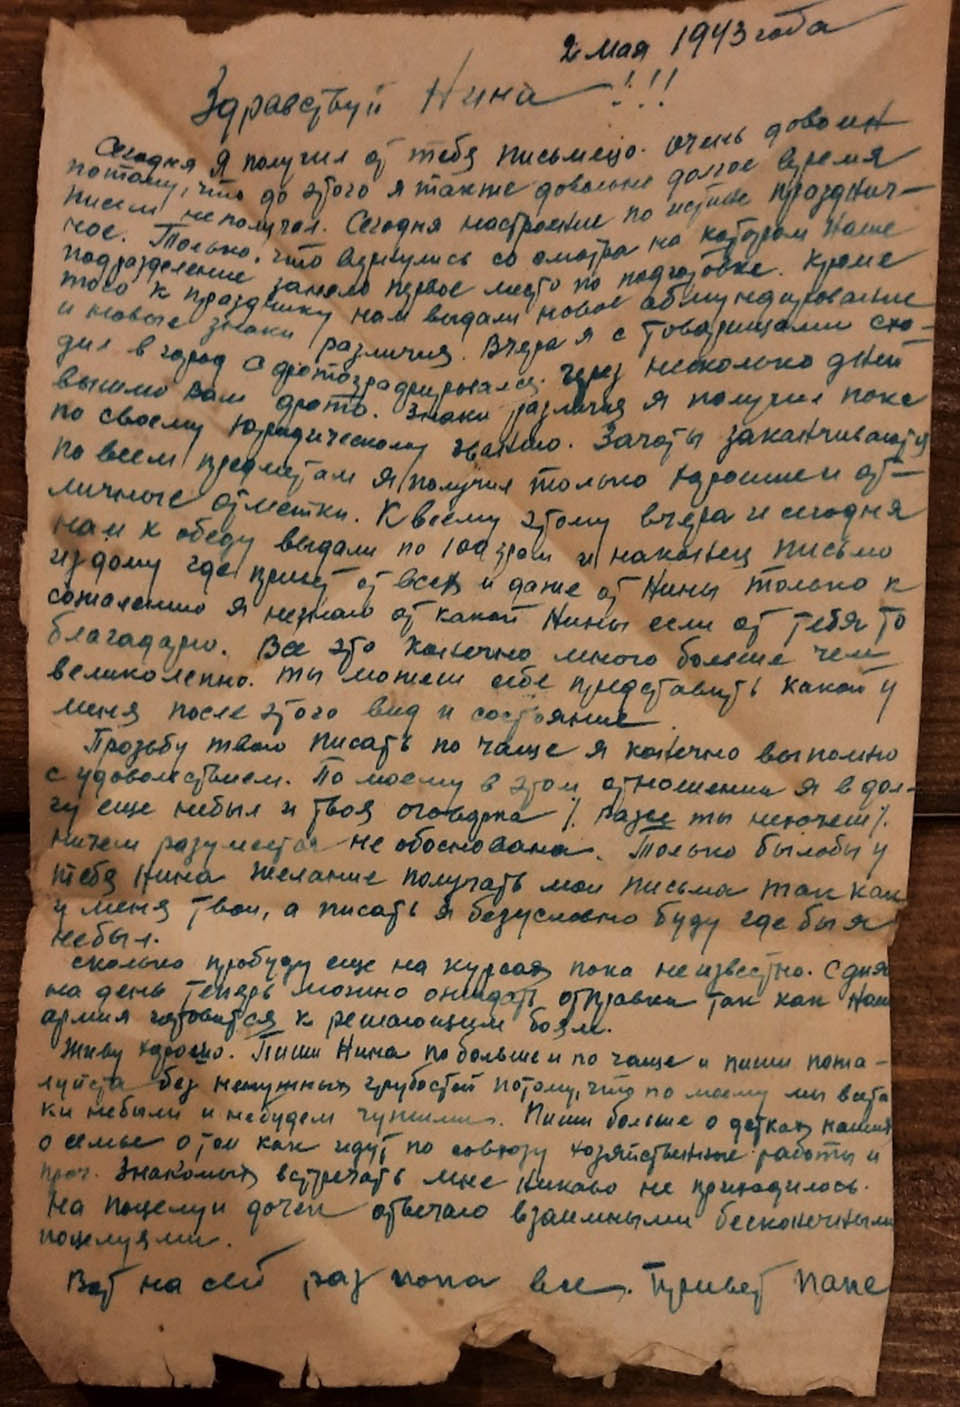 2 мая 1943 года
Здравствуй Нина !!!
Сегодня я получил от тебя письмецо. Очень доволен
потому, что до этого я также довольно долгое время
писем не получал. Сегодня настроение по истине празднич-
ное. Только, что вернулись со смотра на котором наше
подразделение заняло первое место по подготовке. Кроме
того к празднику нам выдали новое обмундирование
и новые знаки различия. Вчера я с товарищами схо-
дил в город сфотографировался. Через несколько дней
вышлю вам фото. Знаки различия я получил пока
по своему юридическому званию. Зачеты заканчиваются
по всем предметам я получил только хорошие и от-
личные отметки. К всему этому вчера и сегодня
нам к обеду выдали по 100 грам и наконец письмо
из дому где привет от всех и даже от Нины только к
сожалению я незнаю от какой Нины если от тебя то
благодарю. Все это конечно много больше чем
великолепно. Ты можеш себе представить какой у
меня после этого вид и состояние.
Прозьбу твою писать по чаще я конечно выполню
с удовольствием. По моему в этом отношении я в дол-
гу еще небыл и твоя оговорка /. Разве ты нехочеш /.
ничем разумеется не обоснована. Только былобы у
тебя Нина желание получать мои письма так как
у меня твои, а писать я безусловно буду где бы я
небыл.
Сколько пробуду еще на курсах пока неизвестно. С дня
на день теперь можно ожидать отправки так как наш
армия готовится к решающим боям.
Живу хорошо. Пиши Нина по больше и по чаще и пиши пожа-
луйста без ненужных грубостей потому, что по моему мы вста
ки небыли и небудем чужими. Пиши больше о детках наших
о семье о том как идут по совхозу хозяйственные работы и
проч. Знакомых встречать мне никово не приходилось.
На поцелуи дочек отвечаю взаимными бесконечными
поцелуями.
Вот на сей раз пока все. Привет папе